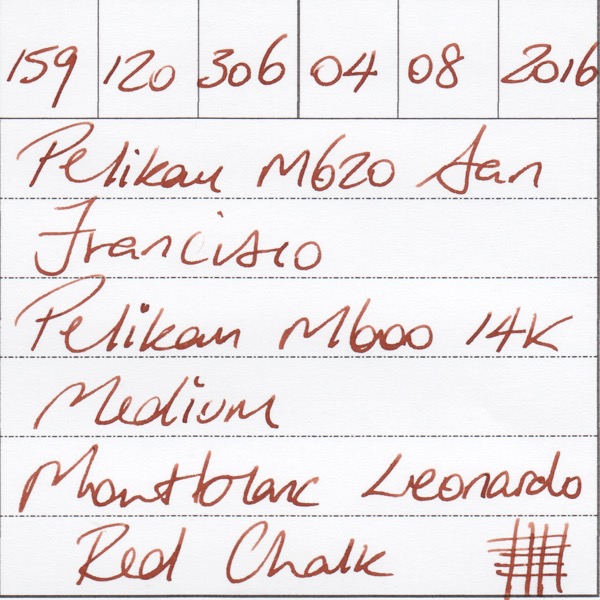 159 120 306 04 08 2016
Pelikan M620 San
Francisco
Pelikan M600 14K
Medium
Montblanc Leonardo
Red Chalk